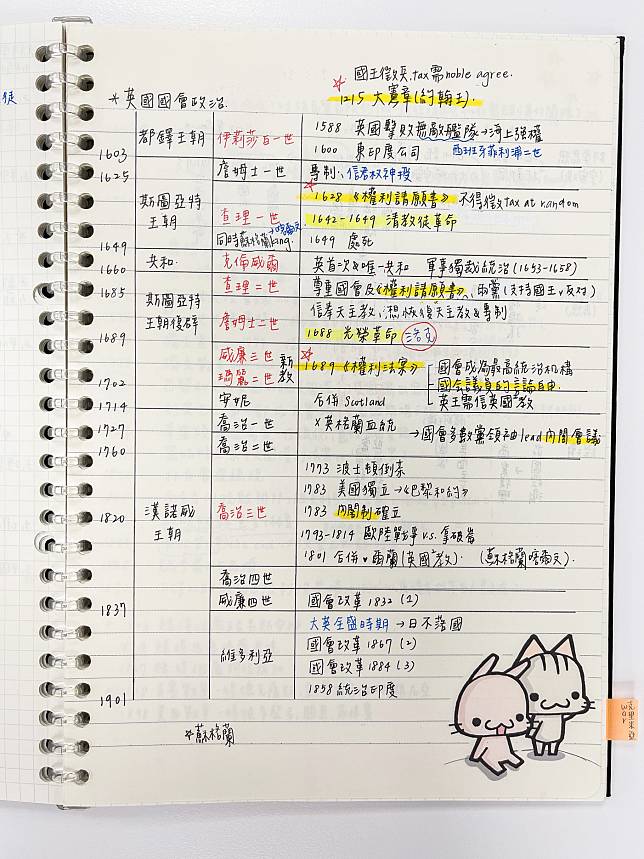 徒
國王徵民tax需noble agree.
☆ 1215 大憲章(約翰王).
*英國國會政治.
都鐸王朝 伊莉莎白一世 1588 英國擊敗無敵艦隊→海上強權
1603 1600 東印度公司 西班牙菲利浦二世
1625 詹姆士一世 專制、信君权神授
斯圖亞特 ☆1628《權利請願書》不得徵tax at random
王朝 查理一世 1642-1649 清教徒革命
同時蘇格蘭king. 1649 處死
1649
共和. 克倫威爾 英首次&唯一共和 軍事獨裁統治(1653-1658)
1660
查理二世 尊重國會及《權利請願書》、兩黨(支持國王v反対)
1685
斯圖亞特 信奉天主教、想恢復天主教&專制
王朝復辟 詹姆士二世 1688 光榮革命 洛克
1689
威廉三世 新 ☆1689《權利法案》 國會成為最高統治机構
瑪麗二世 教 國会議員的言論自由.
1702 英王需信英國教
安妮 合併Scotland
1714
喬治一世 ×英格蘭血統 →國會多數黨領袖lead內閣會議
1727
喬治二世
1760
1773 波士頓倒茶
1783 美國獨立→《巴黎和約》
漢諾威 喬治三世 1783 內閣制確立
1820
王朝 1793-1814 歐陸戰爭v.s.拿破崙
1801 合併愛爾蘭(英國教). (蘇格蘭喀爾文).
喬治四世
威廉四世 國會改革1832(1)
1837
大英全盛時期→日不落國
國會改革1867(2)
維多利亞
國會改革1884(3)
1858統治印度
1901
☆蘇格蘭
克里米亞
war